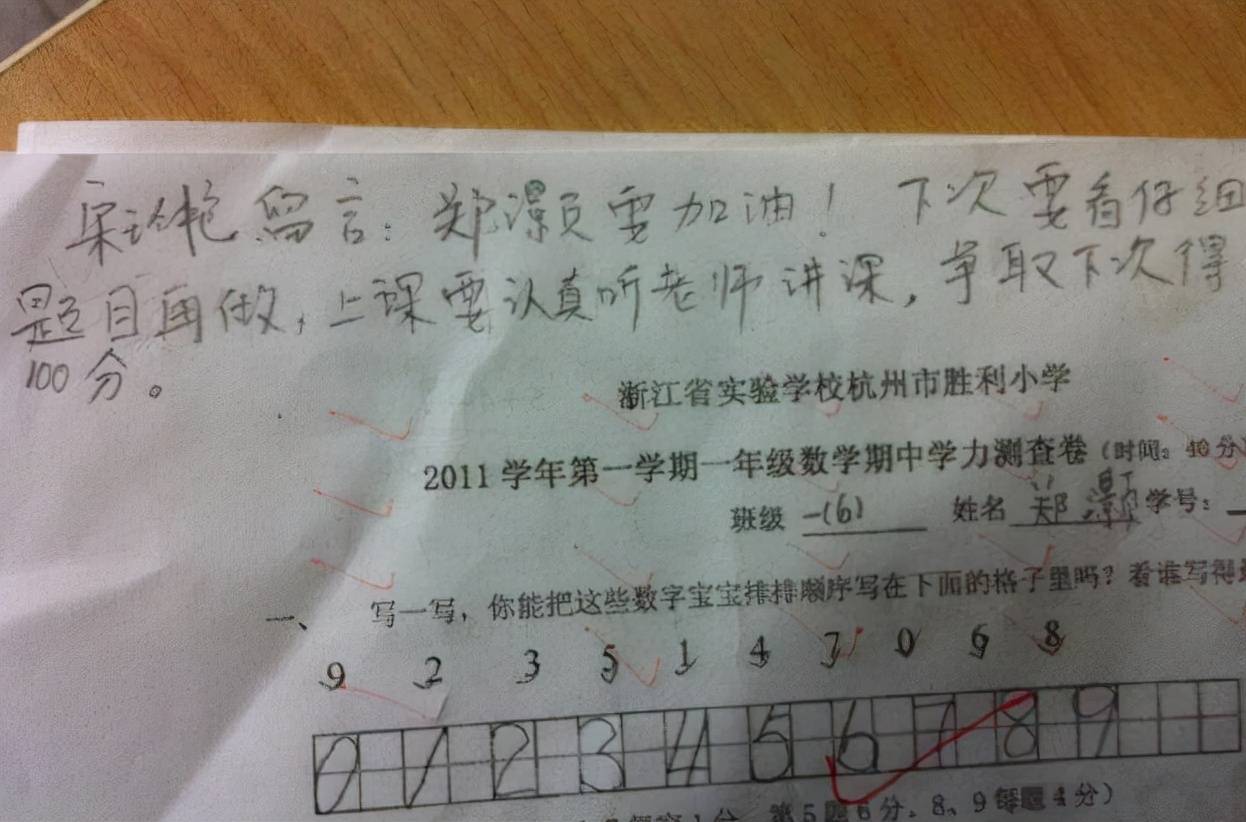 宋玲艳留言：郑灏员要加油！下次要看仔细
题目再做，上课要认真听老师讲课，争取下次得
100分。
浙江省实验学校杭州市胜利小学
2011学年第一学期一年级数学期中学力测查卷（时间：40分
班级 一(6) 姓名 郑灏 学号：
一、 写一写，你能把这些数字宝宝排排顺序写在下面的格子里吗？看谁写得
9 2 3 5 1 4 7 0 6 8
0 1 2 3 4 5 6 7 8 9
第5题6分，8、9每题4分）